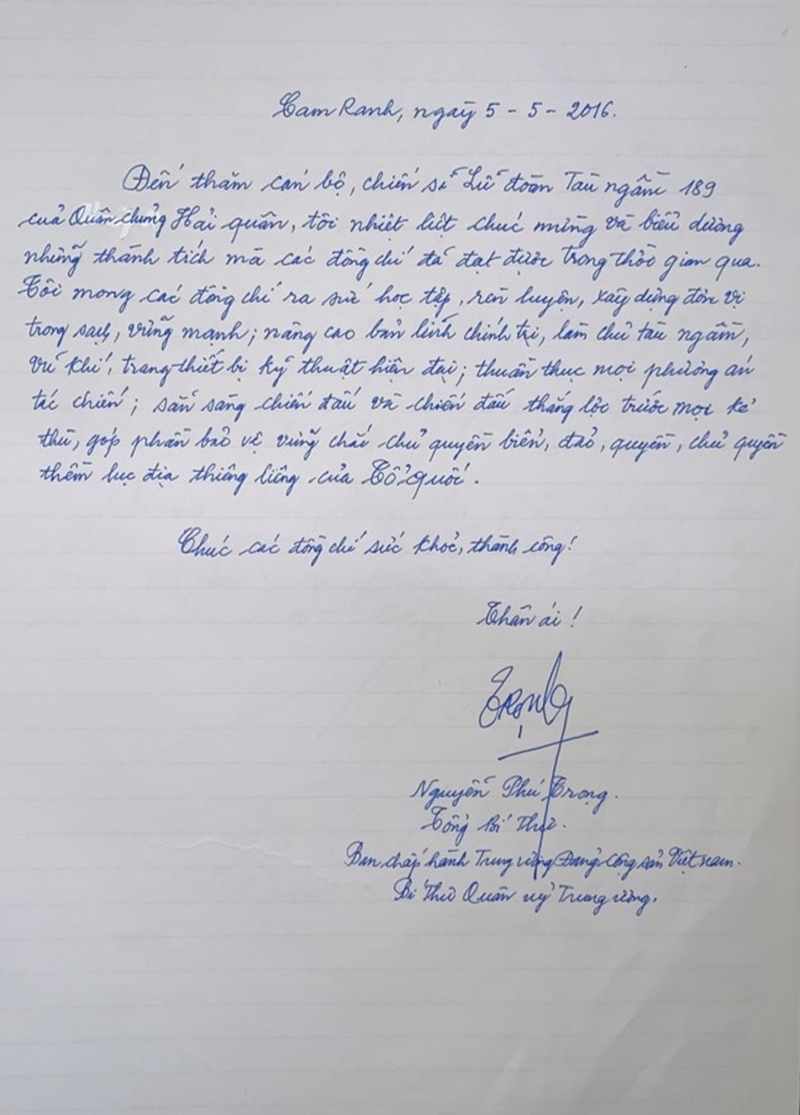 Cam Ranh, ngày 5 - 5 - 2016.
Đến thăm cán bộ, chiến sĩ Lữ đoàn Tàu ngầm 189
của Quân chủng Hải quân, tôi nhiệt liệt chúc mừng và biểu dương
những thành tích mà các đồng chí đã đạt được trong thời gian qua.
Tôi mong các đồng chí ra sức học tập, rèn luyện, xây dựng đơn vị
trong sạch, vững mạnh; nâng cao bản lĩnh chính trị, làm chủ tàu ngầm,
vũ khí, trang thiết bị kỹ thuật hiện đại; thuần thục mọi phương án
tác chiến; sẵn sàng chiến đấu và chiến đấu thắng lợi trước mọi kẻ
thù, góp phần bảo vệ vững chắc chủ quyền biển, đảo, quyền, chủ quyền
thềm lục địa thiêng liêng của Tổ quốc.
Chúc các đồng chí sức khoẻ, thành công!
Thân ái!
Trọng
Nguyễn Phú Trọng.
Tổng Bí thư.
Ban chấp hành Trung ương Đảng Cộng sản Việt nam.
Bí thư Quân uỷ Trung ương.